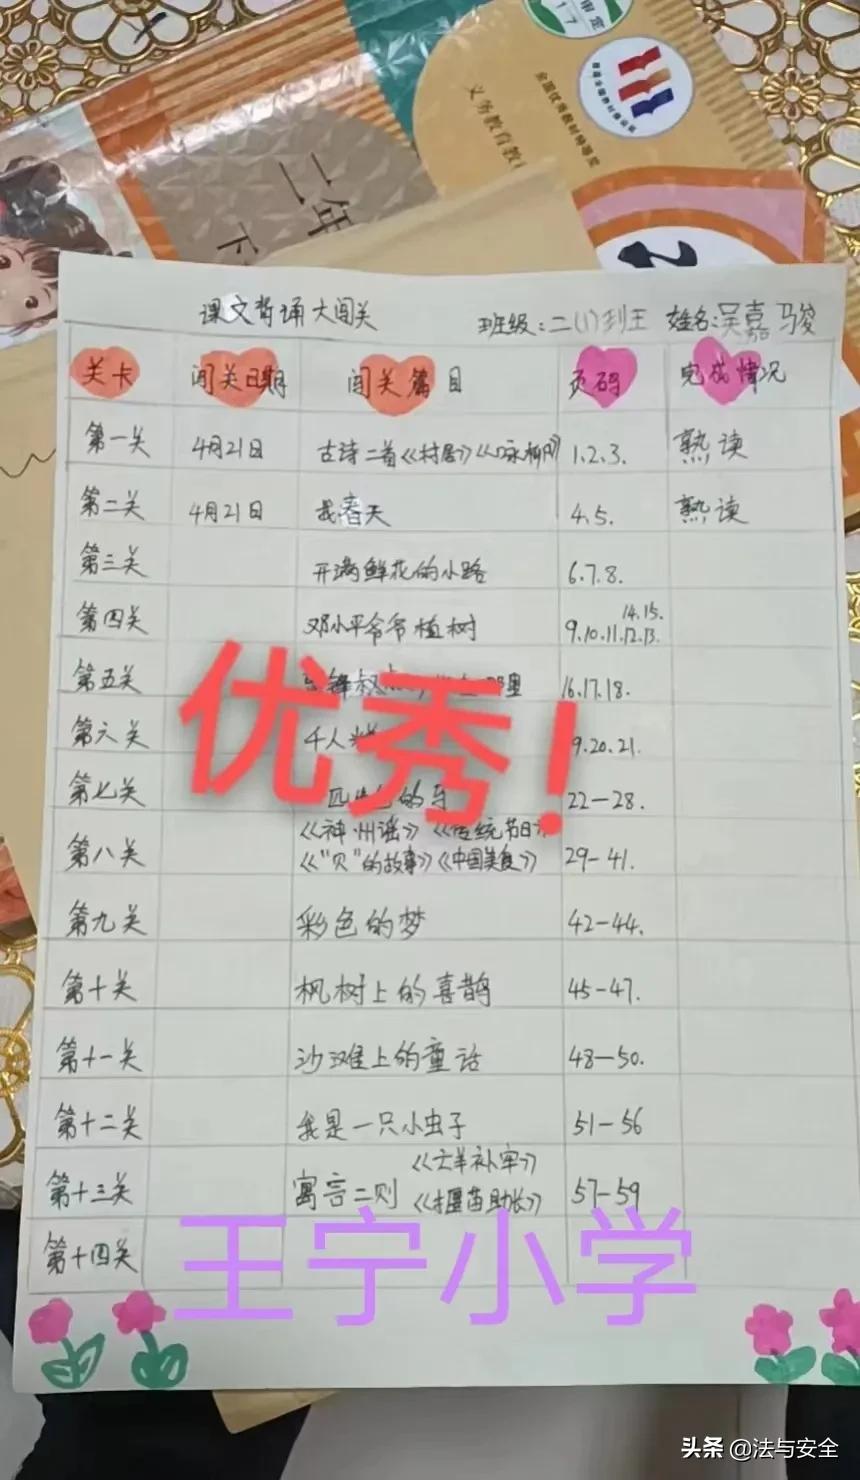 审定
义务教育教
二年
下
课文背诵大闯关 班级:二(1)到王 姓名:吴嘉骏
关卡 闯关日期 闯关篇目 页码 完成情况
第一关 4月21日 古诗二首《村居》《咏柳》 1.2.3. 熟读
第二关 4月21日 找春天 4.5. 熟读
第三关 开满鲜花的小路 6.7.8.
第四关 邓小平爷爷植树 9.10.11.12.13.14.15.
第五关 锋叔 里 16.17.18.
第六关 千人 9.20.21.
第七关 匹 的 22—28.
第八关 《神州谣》《传统节日》《"贝"的故事》《中国美食》 29-41.
第九关 彩色的梦 42-44.
第十关 枫树上的喜鹊 45-47.
第十一关 沙滩上的童话 48—50.
第十二关 我是一只小虫子 51-56
第十三关 寓言二则《亡羊补牢》《揠苗助长》 57-59
第十四关
优秀!
王宁小学
头条 @法与安全